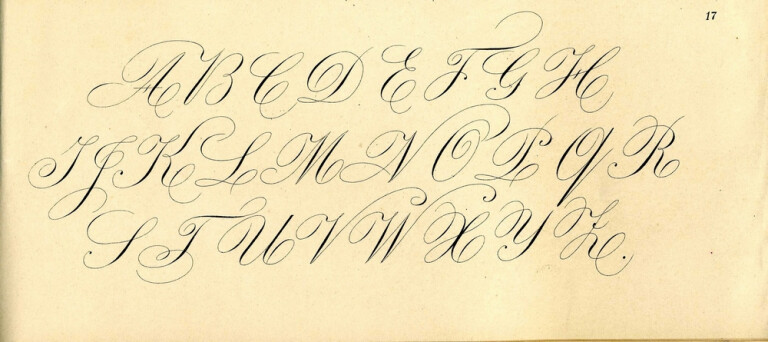 17
A B C D E F G H
I J K L M N O P Q R
S T U V W X Y Z.